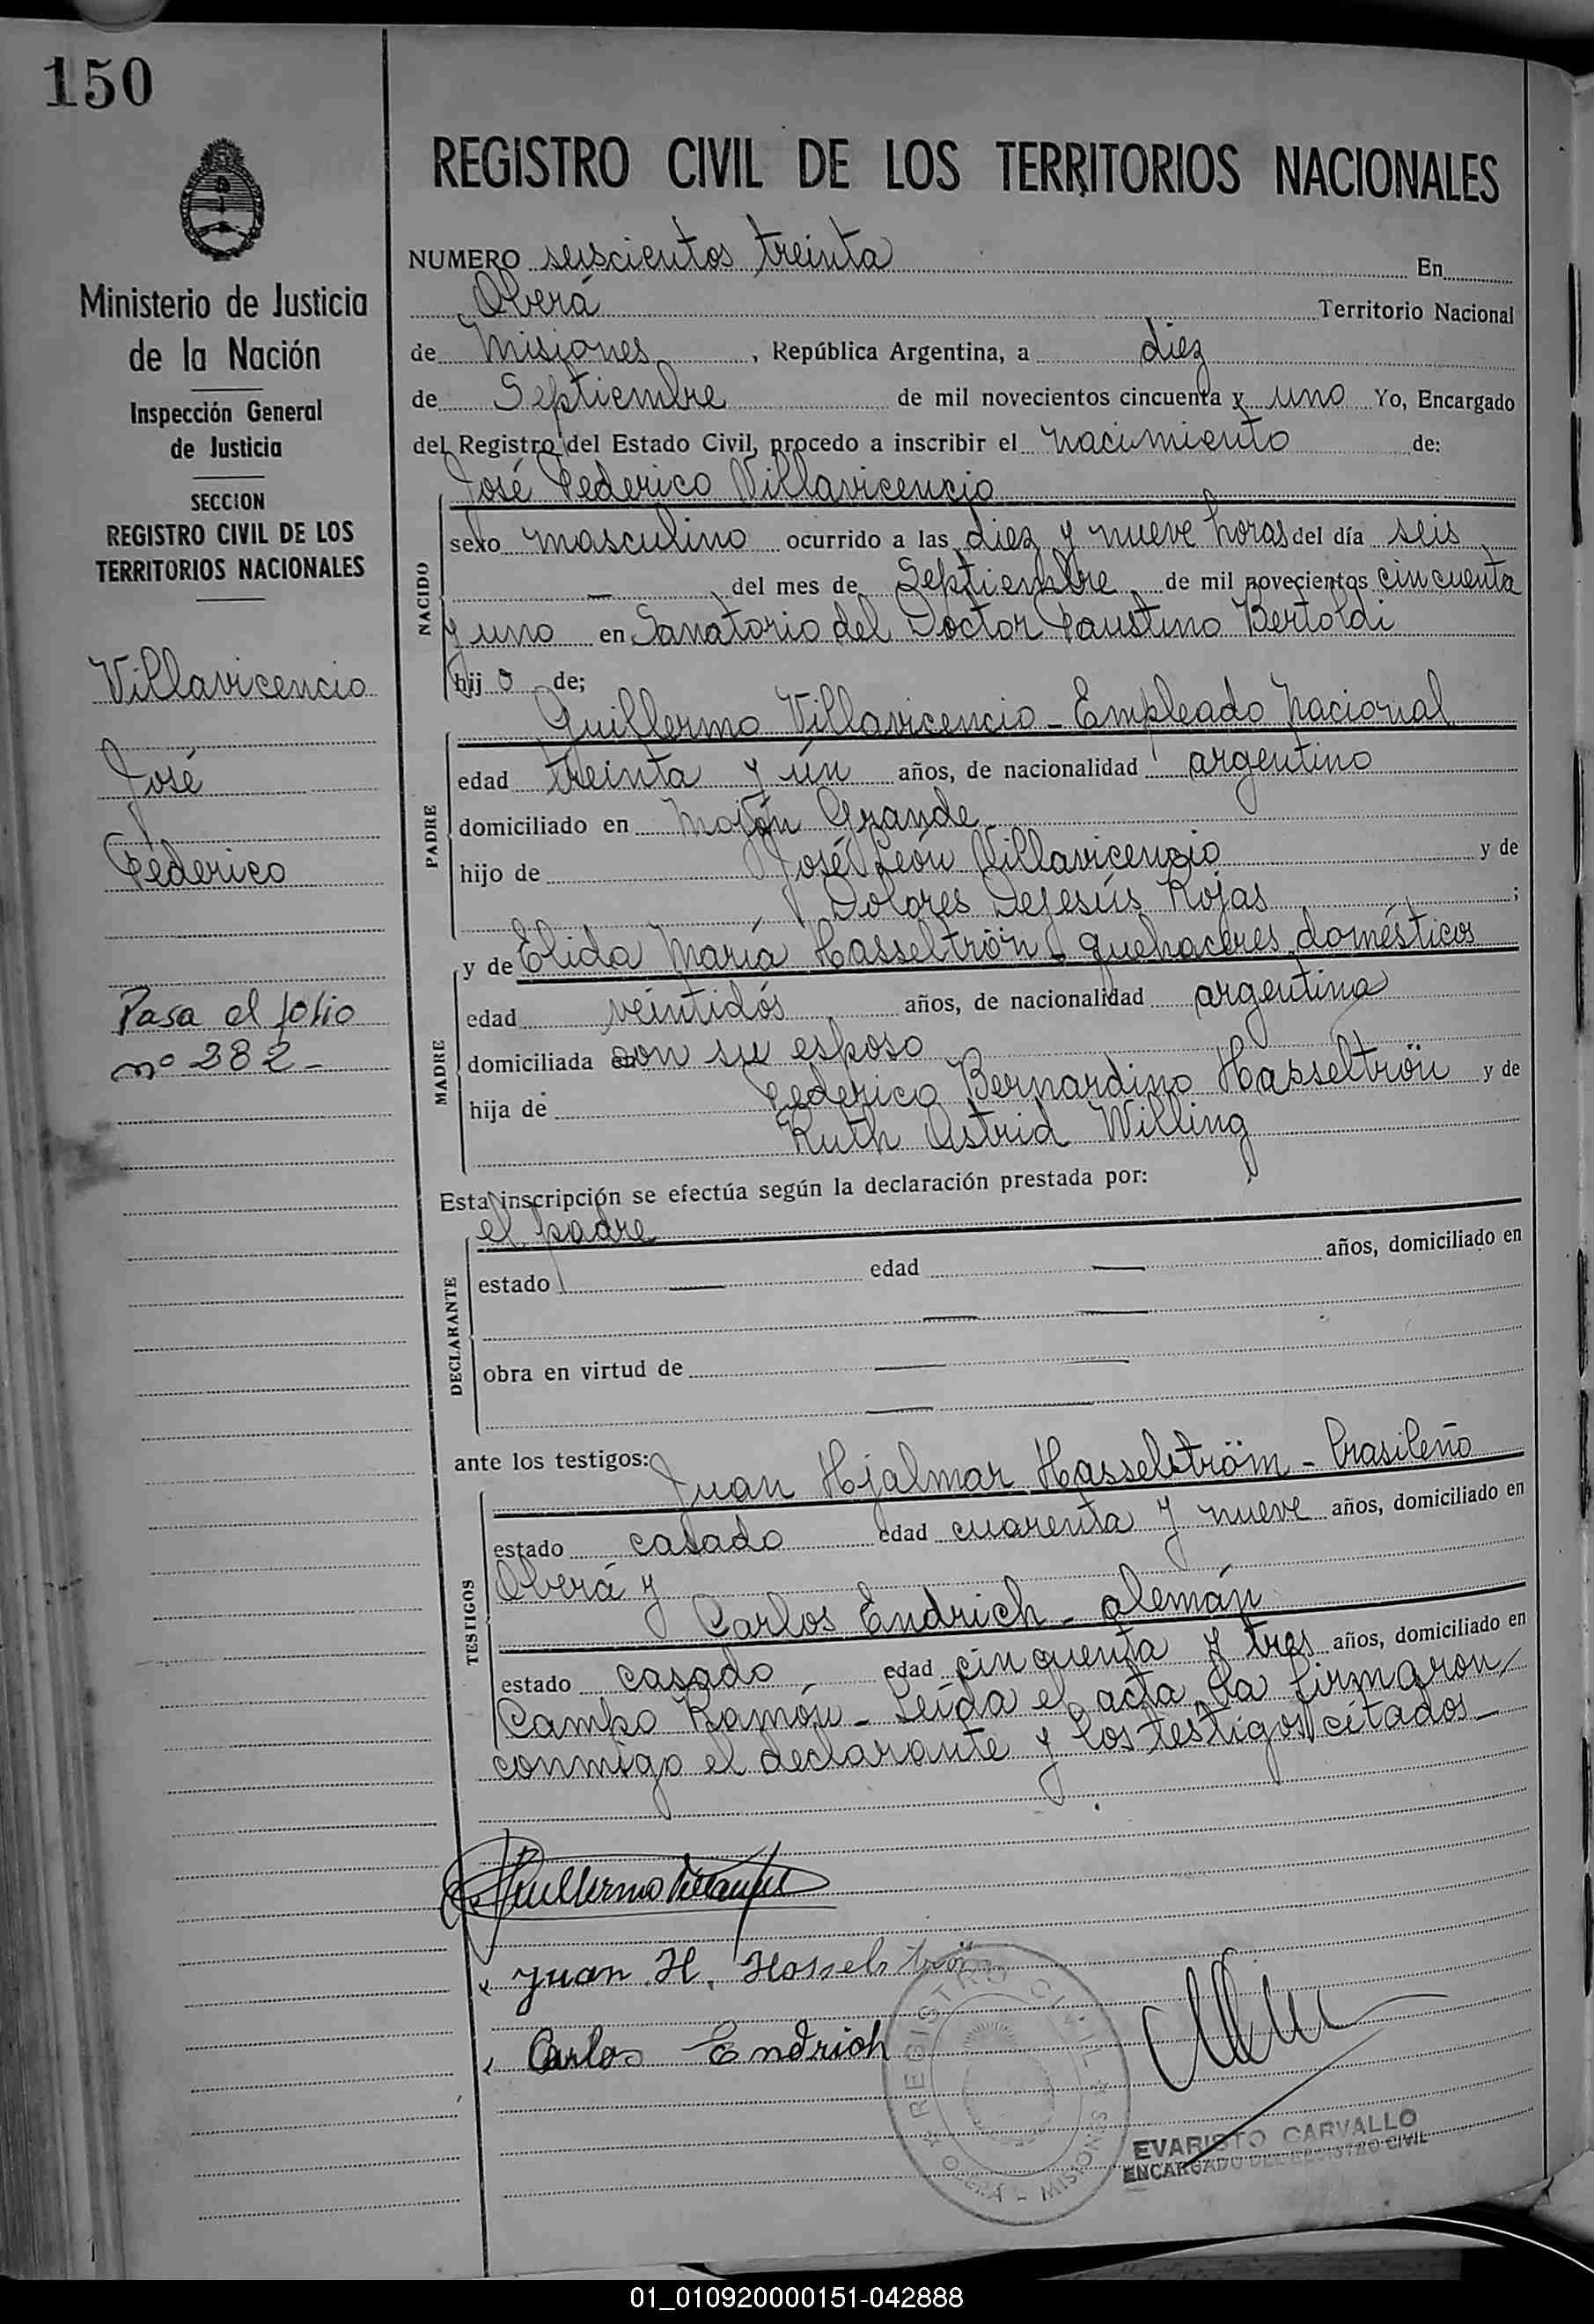 150
Ministerio de Justicia
de la Nación
Inspección General
de Justicia
SECCION
REGISTRO CIVIL DE LOS
TERRITORIOS NACIONALES
Villavicencio
José
Federico
Pasa al folio
nº 282-
REGISTRO CIVIL DE LOS TERRITORIOS NACIONALES
NUMERO seiscientos treinta En
Oberá Territorio Nacional
de Misiones, República Argentina, a diez
de Septiembre de mil novecientos cincuenta y uno Yo, Encargado
del Registro del Estado Civil, procedo a inscribir el nacimiento de:
José Federico Villavicencio
NACIDO
sexo masculino ocurrido a las diez y nueve horas del día seis
— del mes de Septiembre de mil novecientos cincuenta
y uno en Sanatorio del Doctor Faustino Bertoldi
hijo de;
PADRE
Guillermo Villavicencio - Empleado Nacional
edad treinta y ún años, de nacionalidad argentino
domiciliado en Mojón Grande
hijo de José León Villavicencio y de
Dolores Dejesús Rojas ;
MADRE
y de Elida María Hasseltrön - quehaceres domésticos
edad veintidós años, de nacionalidad argentina
domiciliada con su esposo
hija de Federico Bernardino Hasseltrön y de
Ruth Astrid Willing
Esta inscripción se efectúa según la declaración prestada por:
DECLARANTE
el padre
estado — edad — años, domiciliado en
— —
obra en virtud de — —
— —
ante los testigos:
TESTIGOS
Juan Hjalmar Hasselström - brasileño
estado casado edad cuarenta y nueve años, domiciliado en
Oberá y
Carlos Endrich - alemán
estado casado edad cincuenta y tres años, domiciliado en
Campo Ramón - Leída el acta, la firmaron
conmigo el declarante y los testigos citados -
Juan H. Hasselströn
Carlos Endrich
REGISTRO CIVIL
OBERÁ - MISIONES
EVARISTO CARVALLO
ENCARGADO DEL REGISTRO CIVIL
01_010920000151-042888